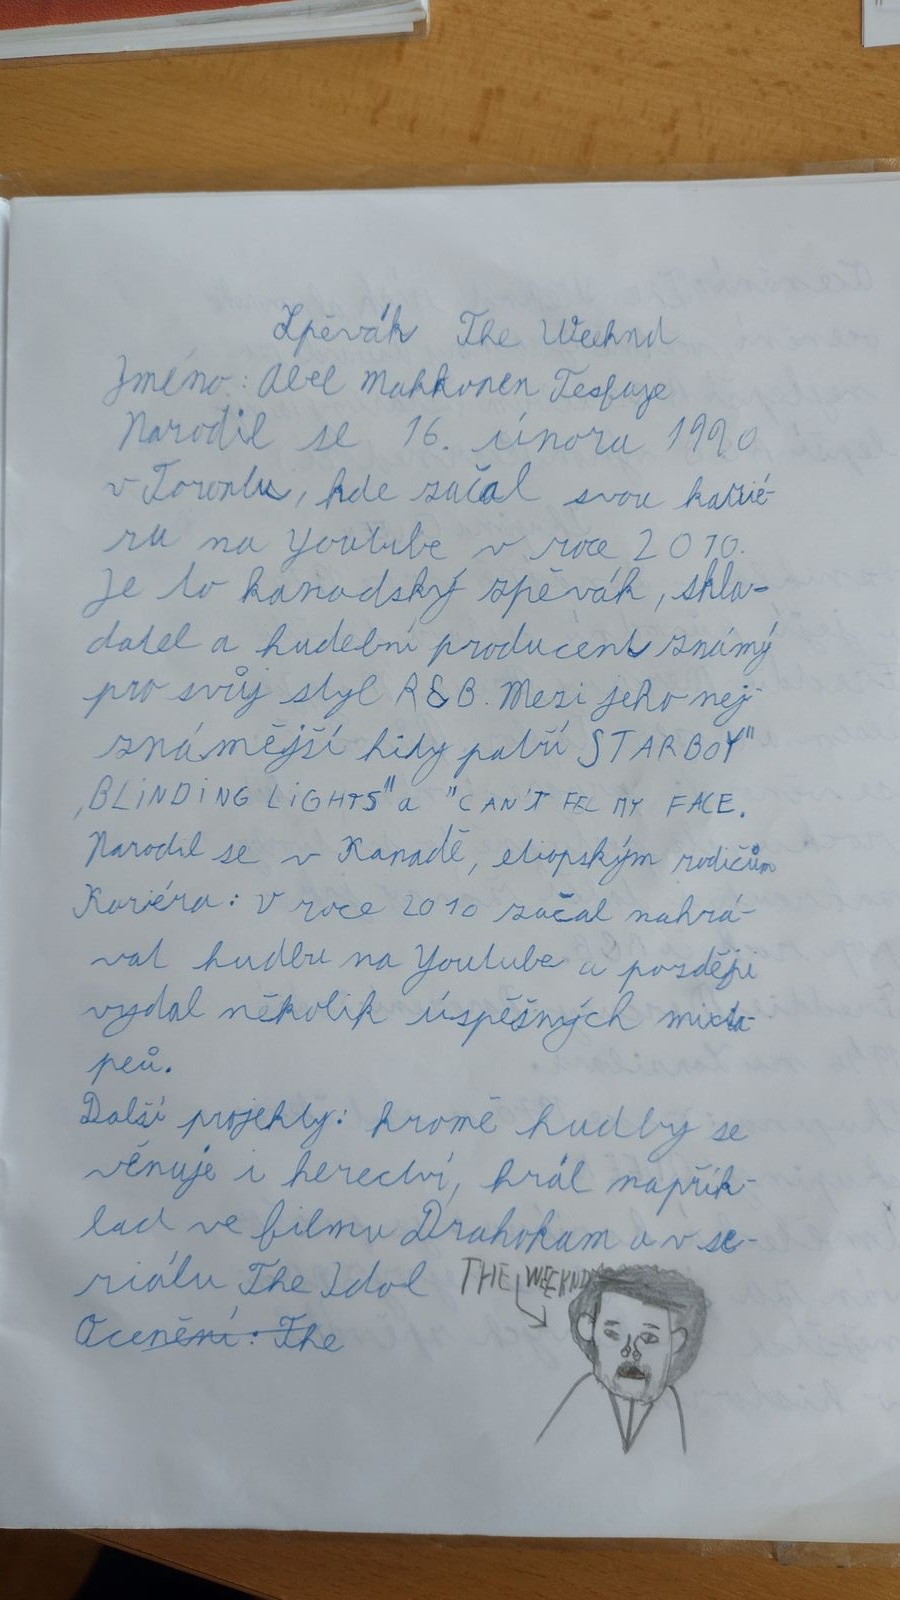 Zpěvák The Weeknd
Jméno: Abel Makkonen Tesfaye
Narodil se 16. února 1990
v Torontu, kde začal svou karié-
ru na Youtube v roce 2010.
Je to kanadský zpěvák, skla-
datel a hudební producent známý
pro svůj styl R&B. Mezi jeho nej-
známější hity patří STARBOY"
,BLiNDiNG LiGHTS" a "CAN'T FEL MY FACE.
Narodil se v Kanadě, etiopským rodičům
Kariéra: V roce 2010 začal nahrá-
vat hudbu na Youtube a později
vydal několik úspěšných mixta-
peů.
Další projekty: kromě hudby se
věnuje i herectví, hrál napřík-
lad ve filmu Drahokam a v se-
riálu The Idol
THE WEEKND
Ocenění: The